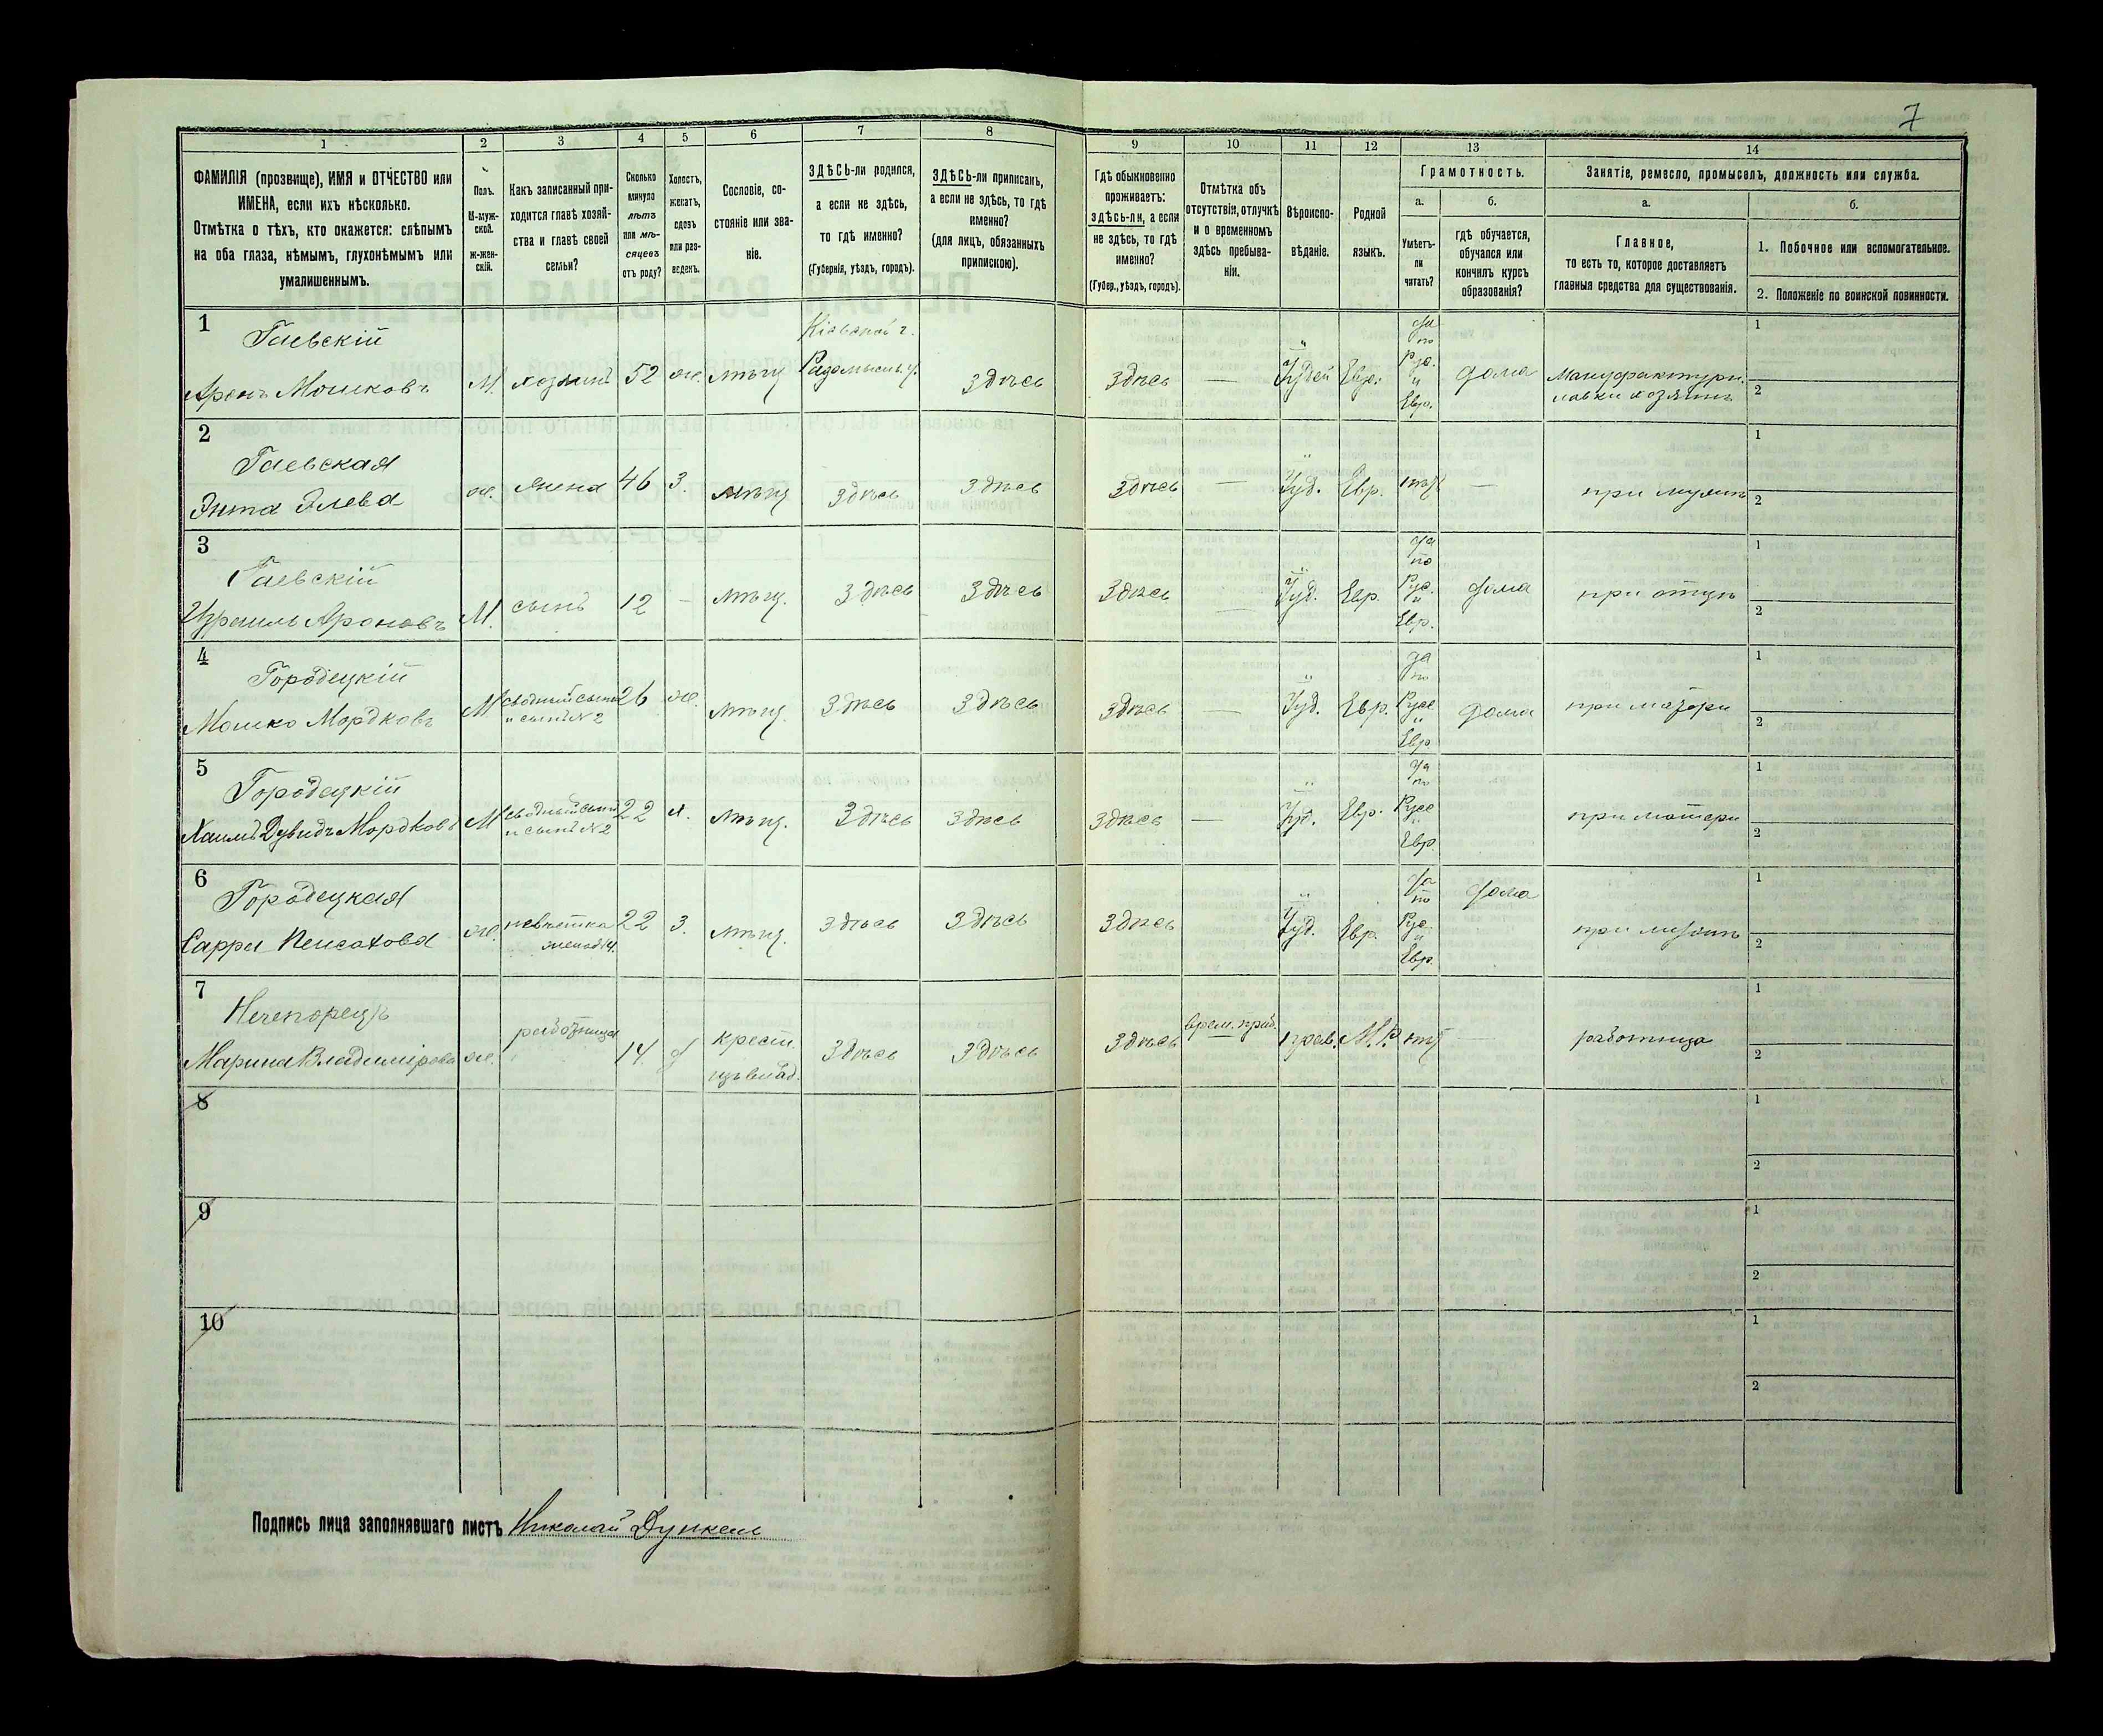 7
1 2 3 4 5 6 7 8 9 10 11 12 13 14
ФАМИЛІЯ (прозвище), ИМЯ и ОТЧЕСТВО или
ИМЕНА, если ихъ нѣсколько.
Отмѣтка о тѣхъ, кто окажется: слѣпымъ
на оба глаза, нѣмымъ, глухонѣмымъ или
умалишеннымъ.
Полъ.
М-муж-
ской.
ж-жен-
скій.
Какъ записанный при-
ходится главѣ хозяй-
ства и главѣ своей
семьи?
Сколько
минуло
лѣтъ
или мѣ-
сяцевъ
отъ роду?
Холостъ,
женатъ,
вдовъ
или раз-
веденъ.
Сословіе, со-
стояніе или зва-
ніе.
ЗДѢСЬ-ли родился,
а если не здѣсь,
то гдѣ именно?
(Губернія, уѣздъ, городъ).
ЗДѢСЬ-ли приписанъ,
а если не здѣсь, то гдѣ
именно?
(для лицъ, обязанныхъ
припискою).
Гдѣ обыкновенно
проживаетъ:
здѣсь-ли, а если
не здѣсь, то гдѣ
именно?
(Губер., уѣздъ, городъ).
Отмѣтка объ
отсутствіи, отлучкѣ
и о временномъ
здѣсь пребыва-
ніи.
Вѣроиспо-
вѣданіе.
Родной
языкъ.
Грамотность.
а.
Умѣетъ-
ли
читать?
б.
гдѣ обучается,
обучался или
кончилъ курсъ
образованія?
Занятіе, ремесло, промыселъ, должность или служба.
а.
Главное,
то есть то, которое доставляетъ
главныя средства для существованія.
б.
1. Побочное или вспомогательное.
2. Положеніе по воинской повинности.
1
Гаевскій
Аронъ Мошковъ
М. хозяинъ 52 ж. мѣщ
Кіевской г.
Радомысль у.
Здѣсь Здѣсь — Іудей Евр.
да по Рус. и Евр.
дома
Мануфактурн.
лавки хозяинъ
1
2
2
Гаевская
Энта Элева
ж. жена 46 З. мѣщ Здѣсь Здѣсь Здѣсь — Іуд. Евр. нѣт — при мужѣ
1
2
3
Гаевскій
Израиль Ароновъ
М. сынъ 12 — мѣщ. Здѣсь Здѣсь Здѣсь — Іуд. Евр.
да по Рус. и Евр.
дома при отцѣ
1
2
4
Городецкій
Мошко Мордковъ
М сводный сынъ
и сынъ N 2
26 ж. мѣщ. Здѣсь Здѣсь Здѣсь — Іуд. Евр.
да по Русс и Евр
дома при матери
1
2
5
Городецкій
Хаимъ Дувидъ Мордковъ
М сводный сынъ
и сынъ N 2
22 х. мѣщ. Здѣсь Здѣсь Здѣсь — Іуд. Евр.
да по Русс и Евр.
при матери
1
2
6
Городецкая
Сарра Пейсахова
ж. невѣстка
жена N 4.
22 З. мѣщ. Здѣсь Здѣсь Здѣсь Іуд. Евр.
да по Рус. и Евр.
дома при мужѣ
1
2
7
Нечепорецъ
Марина Владимірова
ж. работница 14 д
крест.
изъ влад.
Здѣсь Здѣсь Здѣсь врем. преб. прав. М.Р. нѣт работница
1
2
8
1
2
9
1
2
10
1
2
Подпись лица заполнявшаго листъ Николай Дункель